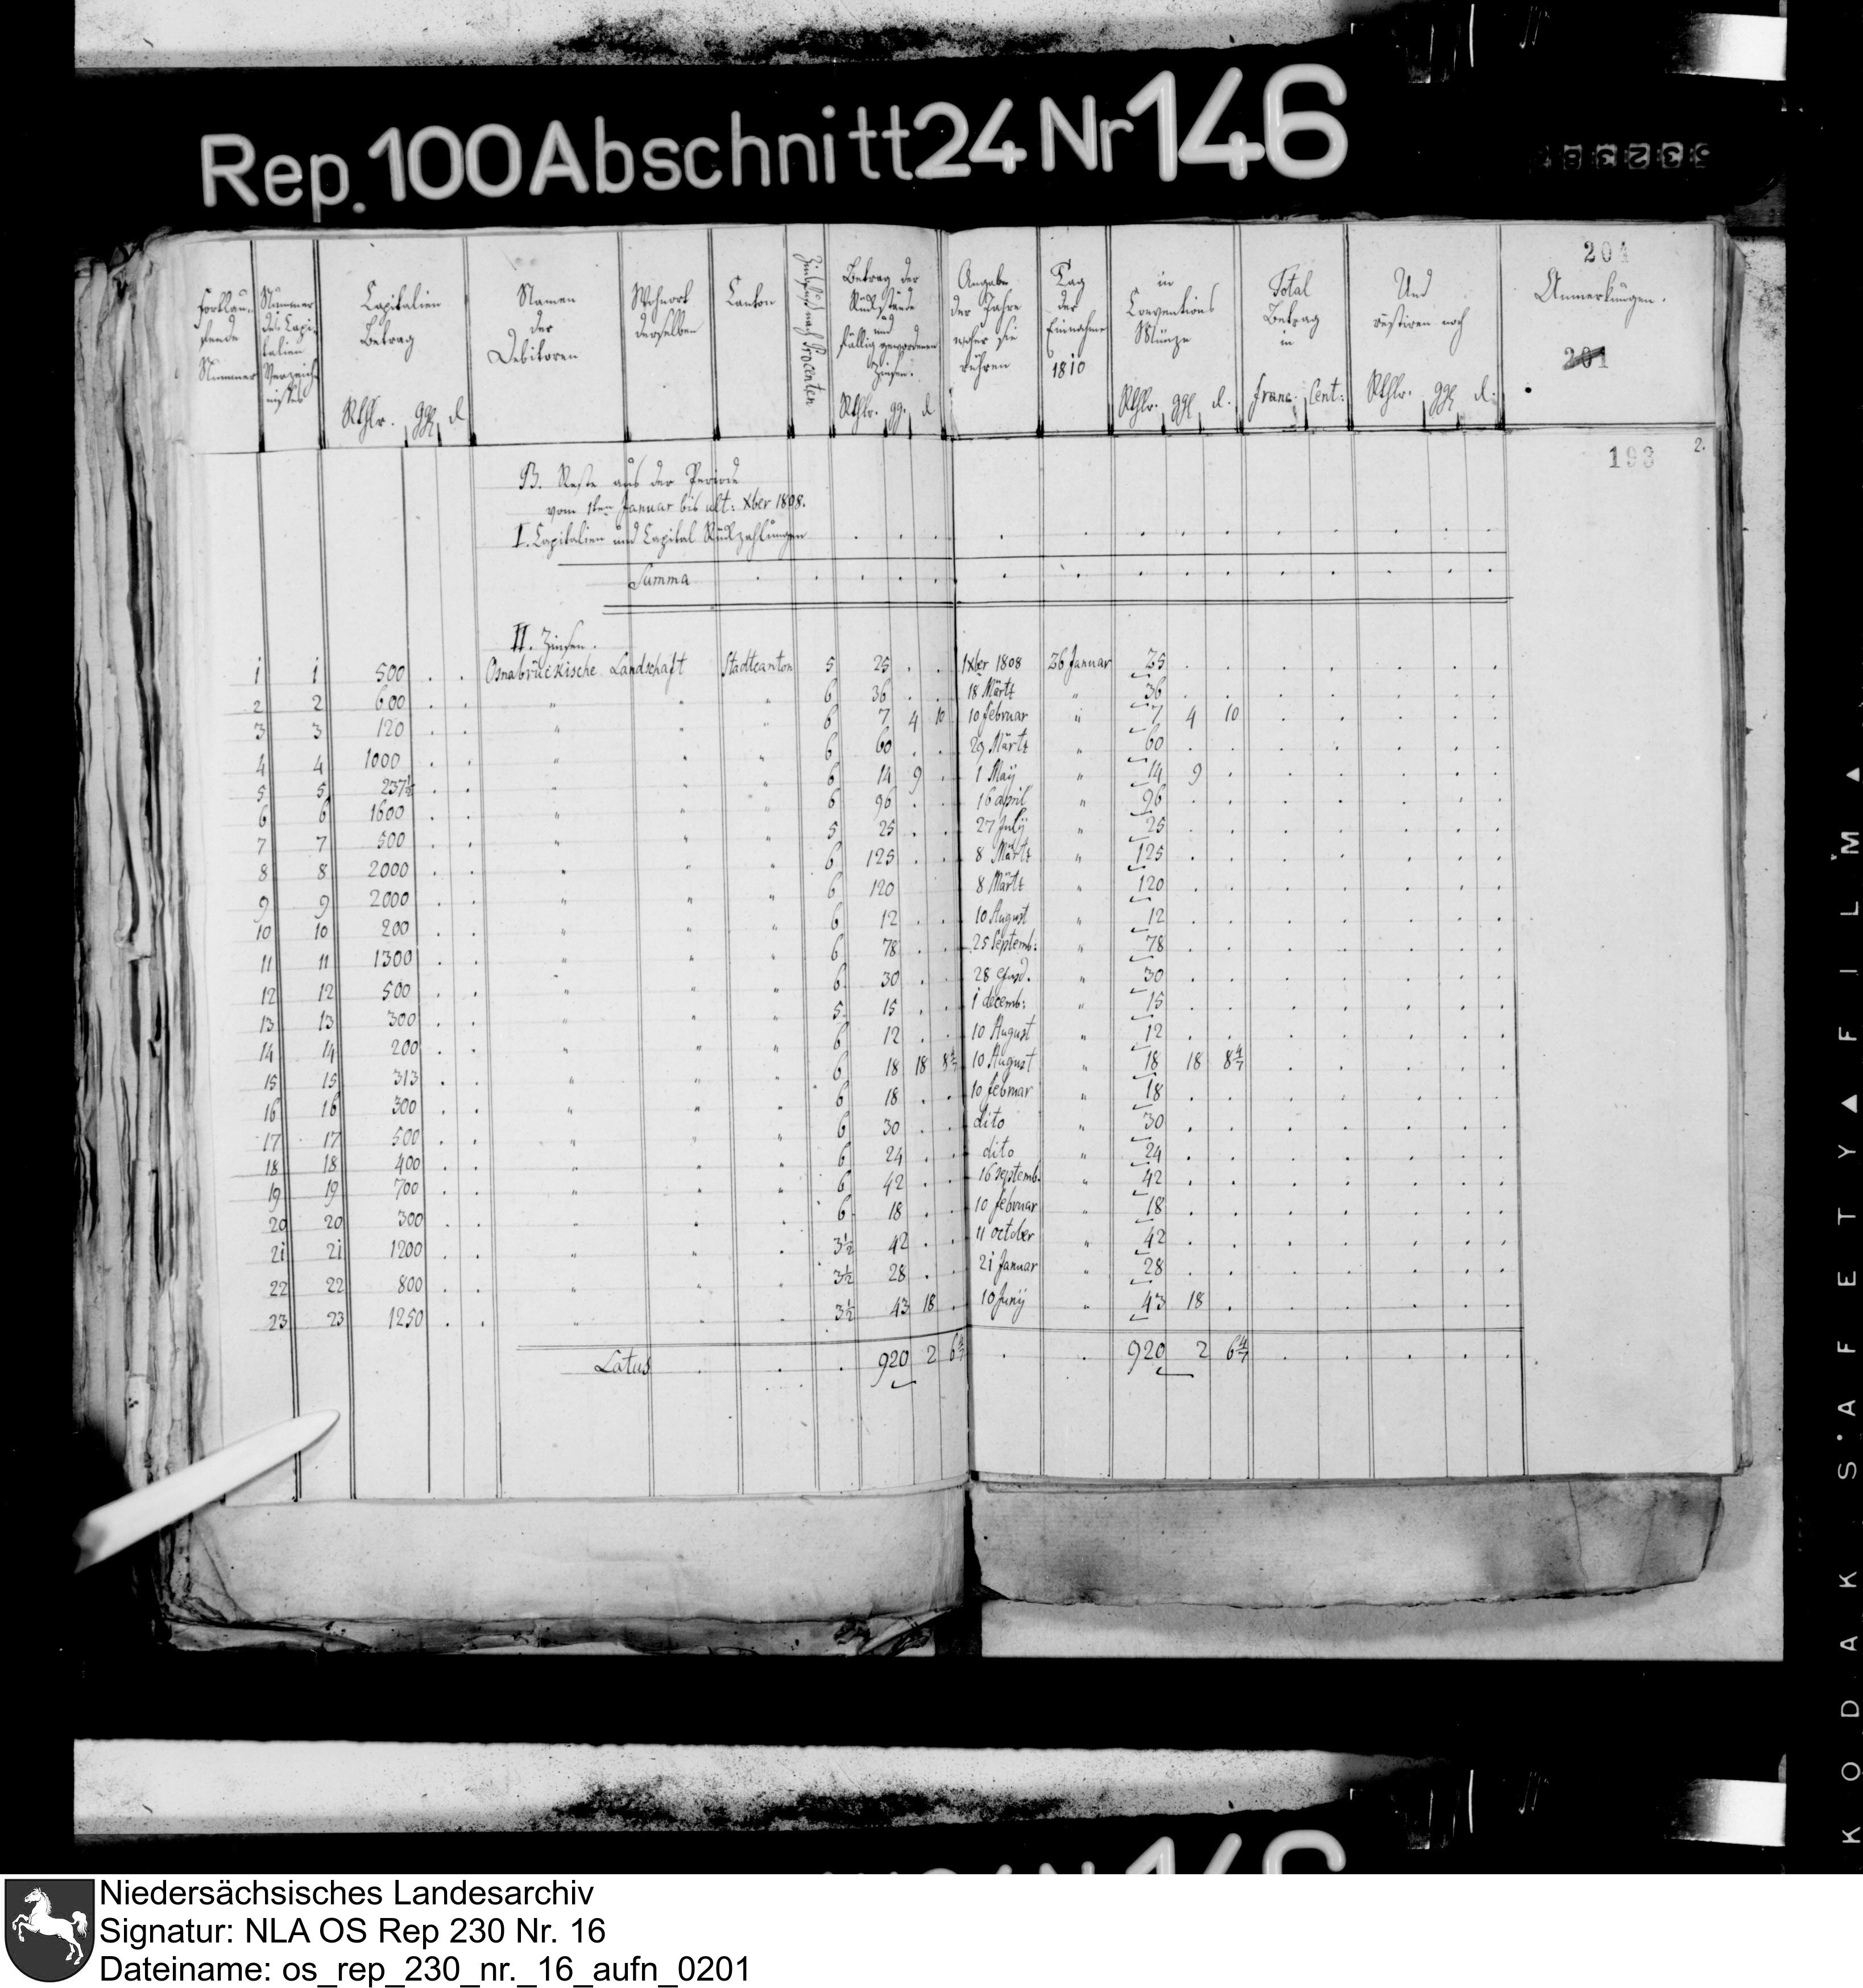 Rep. 100 Abschnitt 24 Nr 146
204
201
193
2.
Fortlau-
fende
Nummer
Nummer
des Capi-
talien
Verzeich-
nisses
Capitalien
Betrag
Rthlr. ggl d
Namen
der
Debitoren
Wohnort
derselben
Canton
Zinsfuß nach Procenten
Betrag der
Rückstände
und
fällig gewordenen
Zinsen.
Rthlr. gg. d
Angabe
der Jahre
woher sie
rühren
Tag
der
Einnahme
1810
in
Conventions
Münze
Rthlr. ggl d.
Total
Betrag
in
franc. Cent:
Und
restiren noch
Rthlr. ggl d.
Anmerkungen.
B. Reste aus der Periode
vom 1ten Januar bis ult: Xber 1808.
I. Capitalien und Capital Rückzahlungen
Summa
II. Zinsen.
1 1 500 Osnabrückische Landschaft Stadtcanton 5 25 1Xber 1808 26 Januar 25
2 2 600 " " " 6 36 18 Märtz " 36
3 3 120 " " " 6 7 4 10 10 februar " 7 4 10
4 4 1000 " " " 6 60 29 Märtz " 60
5 5 237½ " " " 6 14 9 1 Maÿ " 14 9
6 6 1600 " " " 6 96 16 april " 96
7 7 500 " " " 5 25 27 Julÿ " 25
8 8 2000 " " " 6 125 8 Märtz " 125
9 9 2000 " " " 6 120 8 Märtz " 120
10 10 200 " " " 6 12 10 August " 12
11 11 1300 " " " 6 78 25 Septemb: " 78
12 12 500 " " " 6 30 28 ejusd. " 30
13 13 300 " " " 5 15 1 decemb: " 15
14 14 200 " " " 6 12 10 August " 12
15 15 313 " " " 6 18 18 8 4/7 10 August " 18 18 8 4/7
16 16 300 " " " 6 18 10 februar " 18
17 17 500 " " " 6 30 dito " 30
18 18 400 " " " 6 24 dito " 24
19 19 700 " " " 6 42 16 septemb. " 42
20 20 300 " " " 6 18 10 februar " 18
21 21 1200 " " " 3½ 42 11 october " 42
22 22 800 " " " 3½ 28 21 Januar " 28
23 23 1250 " " " 3½ 43 18 10 Junÿ " 43 18
Latus 920 2 6 4/7 920 2 6 4/7
KODAK SAFETY FILM
Niedersächsisches Landesarchiv
Signatur: NLA OS Rep 230 Nr. 16
Dateiname: os_rep_230_nr._16_aufn_0201